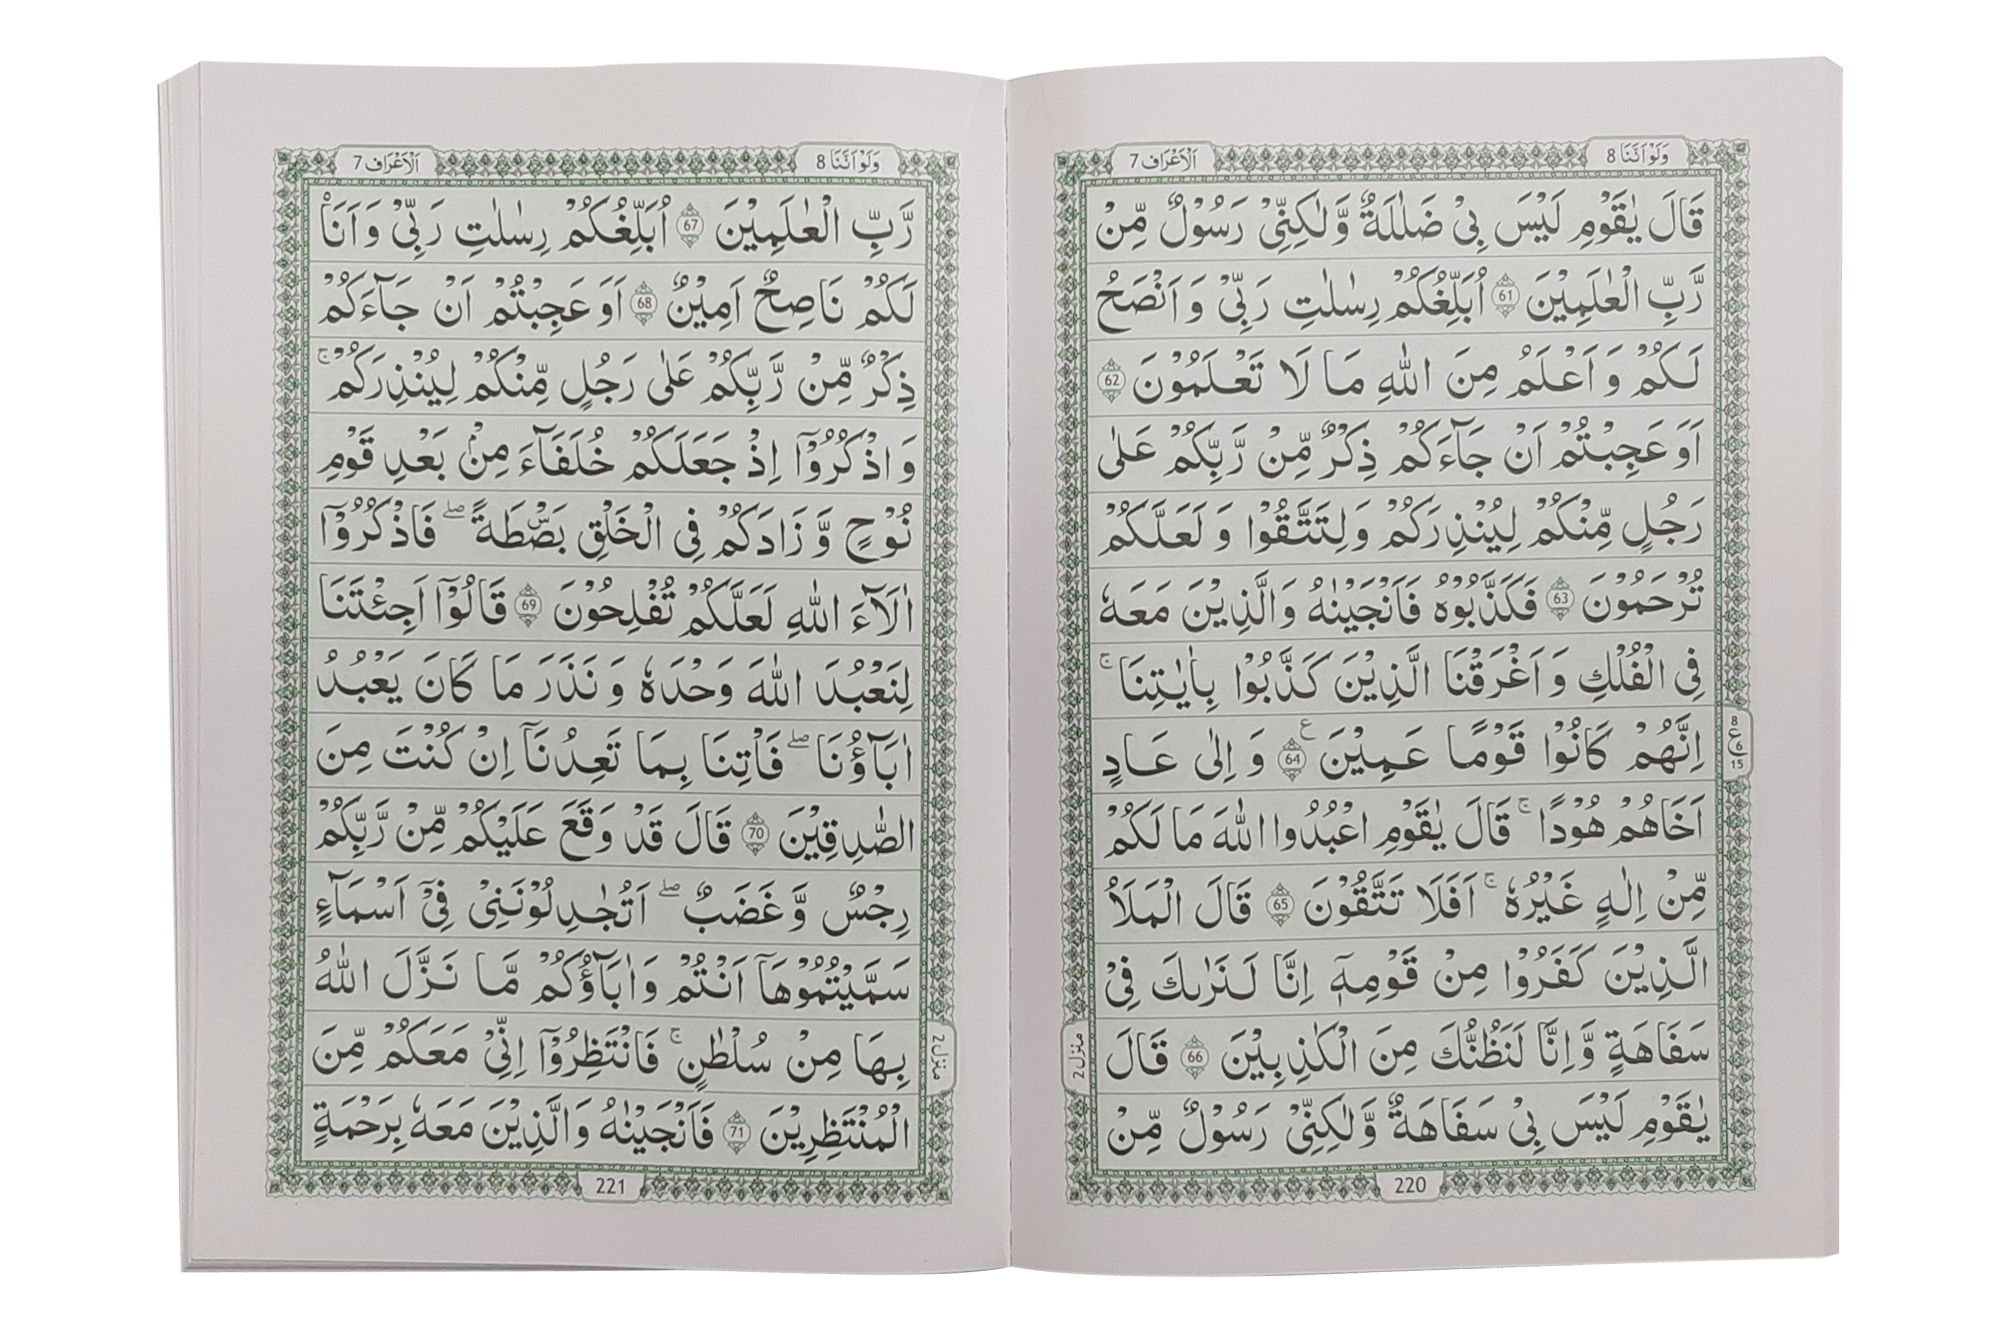 وَلَوْ اَنَّنَا 8
اَلْاَعْرَاف 7
قَالَ يٰقَوْمِ لَيْسَ بِيْ ضَلٰلَةٌ وَّلٰكِنِّيْ رَسُوْلٌ مِّنْ
رَّبِّ الْعٰلَمِيْنَ 61 اُبَلِّغُكُمْ رِسٰلٰتِ رَبِّيْ وَاَنْصَحُ
لَكُمْ وَاَعْلَمُ مِنَ اللّٰهِ مَا لَا تَعْلَمُوْنَ 62
اَوَعَجِبْتُمْ اَنْ جَآءَكُمْ ذِكْرٌ مِّنْ رَّبِّكُمْ عَلٰى
رَجُلٍ مِّنْكُمْ لِيُنْذِرَكُمْ وَلِتَتَّقُوْا وَلَعَلَّكُمْ
تُرْحَمُوْنَ 63 فَكَذَّبُوْهُ فَاَنْجَيْنٰهُ وَالَّذِيْنَ مَعَهٗ
فِي الْفُلْكِ وَاَغْرَقْنَا الَّذِيْنَ كَذَّبُوْا بِاٰيٰتِنَا ۚ
اِنَّهُمْ كَانُوْا قَوْمًا عَمِيْنَ 64 ع وَاِلٰى عَادٍ
اَخَاهُمْ هُوْدًا ۚ قَالَ يٰقَوْمِ اعْبُدُوا اللّٰهَ مَا لَكُمْ
مِّنْ اِلٰهٍ غَيْرُهٗ ۚ اَفَلَا تَتَّقُوْنَ 65 قَالَ الْمَلَاُ
الَّذِيْنَ كَفَرُوْا مِنْ قَوْمِهٖٓ اِنَّا لَنَرٰىكَ فِيْ
سَفَاهَةٍ وَّاِنَّا لَنَظُنُّكَ مِنَ الْكٰذِبِيْنَ 66 قَالَ
يٰقَوْمِ لَيْسَ بِيْ سَفَاهَةٌ وَّلٰكِنِّيْ رَسُوْلٌ مِّنْ
8
ع 6
15
منزل 2
220
وَلَوْ اَنَّنَا 8
اَلْاَعْرَاف 7
رَّبِّ الْعٰلَمِيْنَ 67 اُبَلِّغُكُمْ رِسٰلٰتِ رَبِّيْ وَاَنَا۠
لَكُمْ نَاصِحٌ اَمِيْنٌ 68 اَوَعَجِبْتُمْ اَنْ جَآءَكُمْ
ذِكْرٌ مِّنْ رَّبِّكُمْ عَلٰى رَجُلٍ مِّنْكُمْ لِيُنْذِرَكُمْ ۚ
وَاذْكُرُوْٓا اِذْ جَعَلَكُمْ خُلَفَآءَ مِنْۢ بَعْدِ قَوْمِ
نُوْحٍ وَّزَادَكُمْ فِي الْخَلْقِ بَصْۜطَةً ۖ فَاذْكُرُوْٓا
اٰلَآءَ اللّٰهِ لَعَلَّكُمْ تُفْلِحُوْنَ 69 قَالُوْٓا اَجِئْتَنَا
لِنَعْبُدَ اللّٰهَ وَحْدَهٗ وَنَذَرَ مَا كَانَ يَعْبُدُ
اٰبَآؤُنَا ۖ فَاْتِنَا بِمَا تَعِدُنَآ اِنْ كُنْتَ مِنَ
الصّٰدِقِيْنَ 70 قَالَ قَدْ وَقَعَ عَلَيْكُمْ مِّنْ رَّبِّكُمْ
رِجْسٌ وَّغَضَبٌ ۖ اَتُجَادِلُوْنَنِيْ فِيْٓ اَسْمَآءٍ
سَمَّيْتُمُوْهَآ اَنْتُمْ وَاٰبَآؤُكُمْ مَّا نَزَّلَ اللّٰهُ
بِهَا مِنْ سُلْطٰنٍ ۚ فَانْتَظِرُوْٓا اِنِّيْ مَعَكُمْ مِّنَ
الْمُنْتَظِرِيْنَ 71 فَاَنْجَيْنٰهُ وَالَّذِيْنَ مَعَهٗ بِرَحْمَةٍ
منزل 2
221